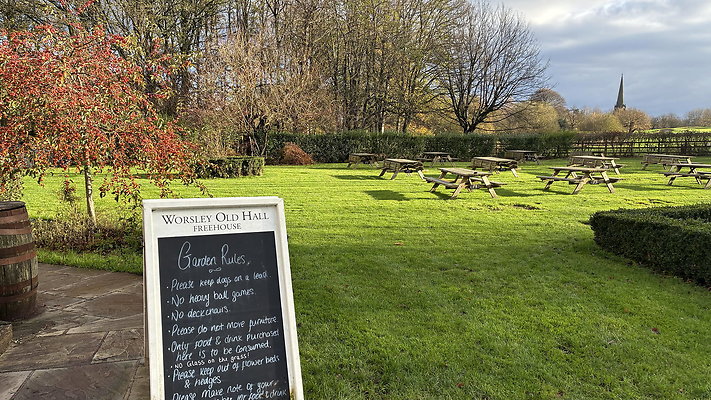 WORSLEY OLD HALL
FREEHOUSE
Garden Rules,
· Please keep dogs on a lead.
· No heavy ball games.
· No deckchairs.
· Please do not move furniture.
· Only food & drink purchased
here is to be consumed.
· NO Glass on the grass!
· Please keep out of flower beds
& hedges.
· Please make note of your
for food & drink